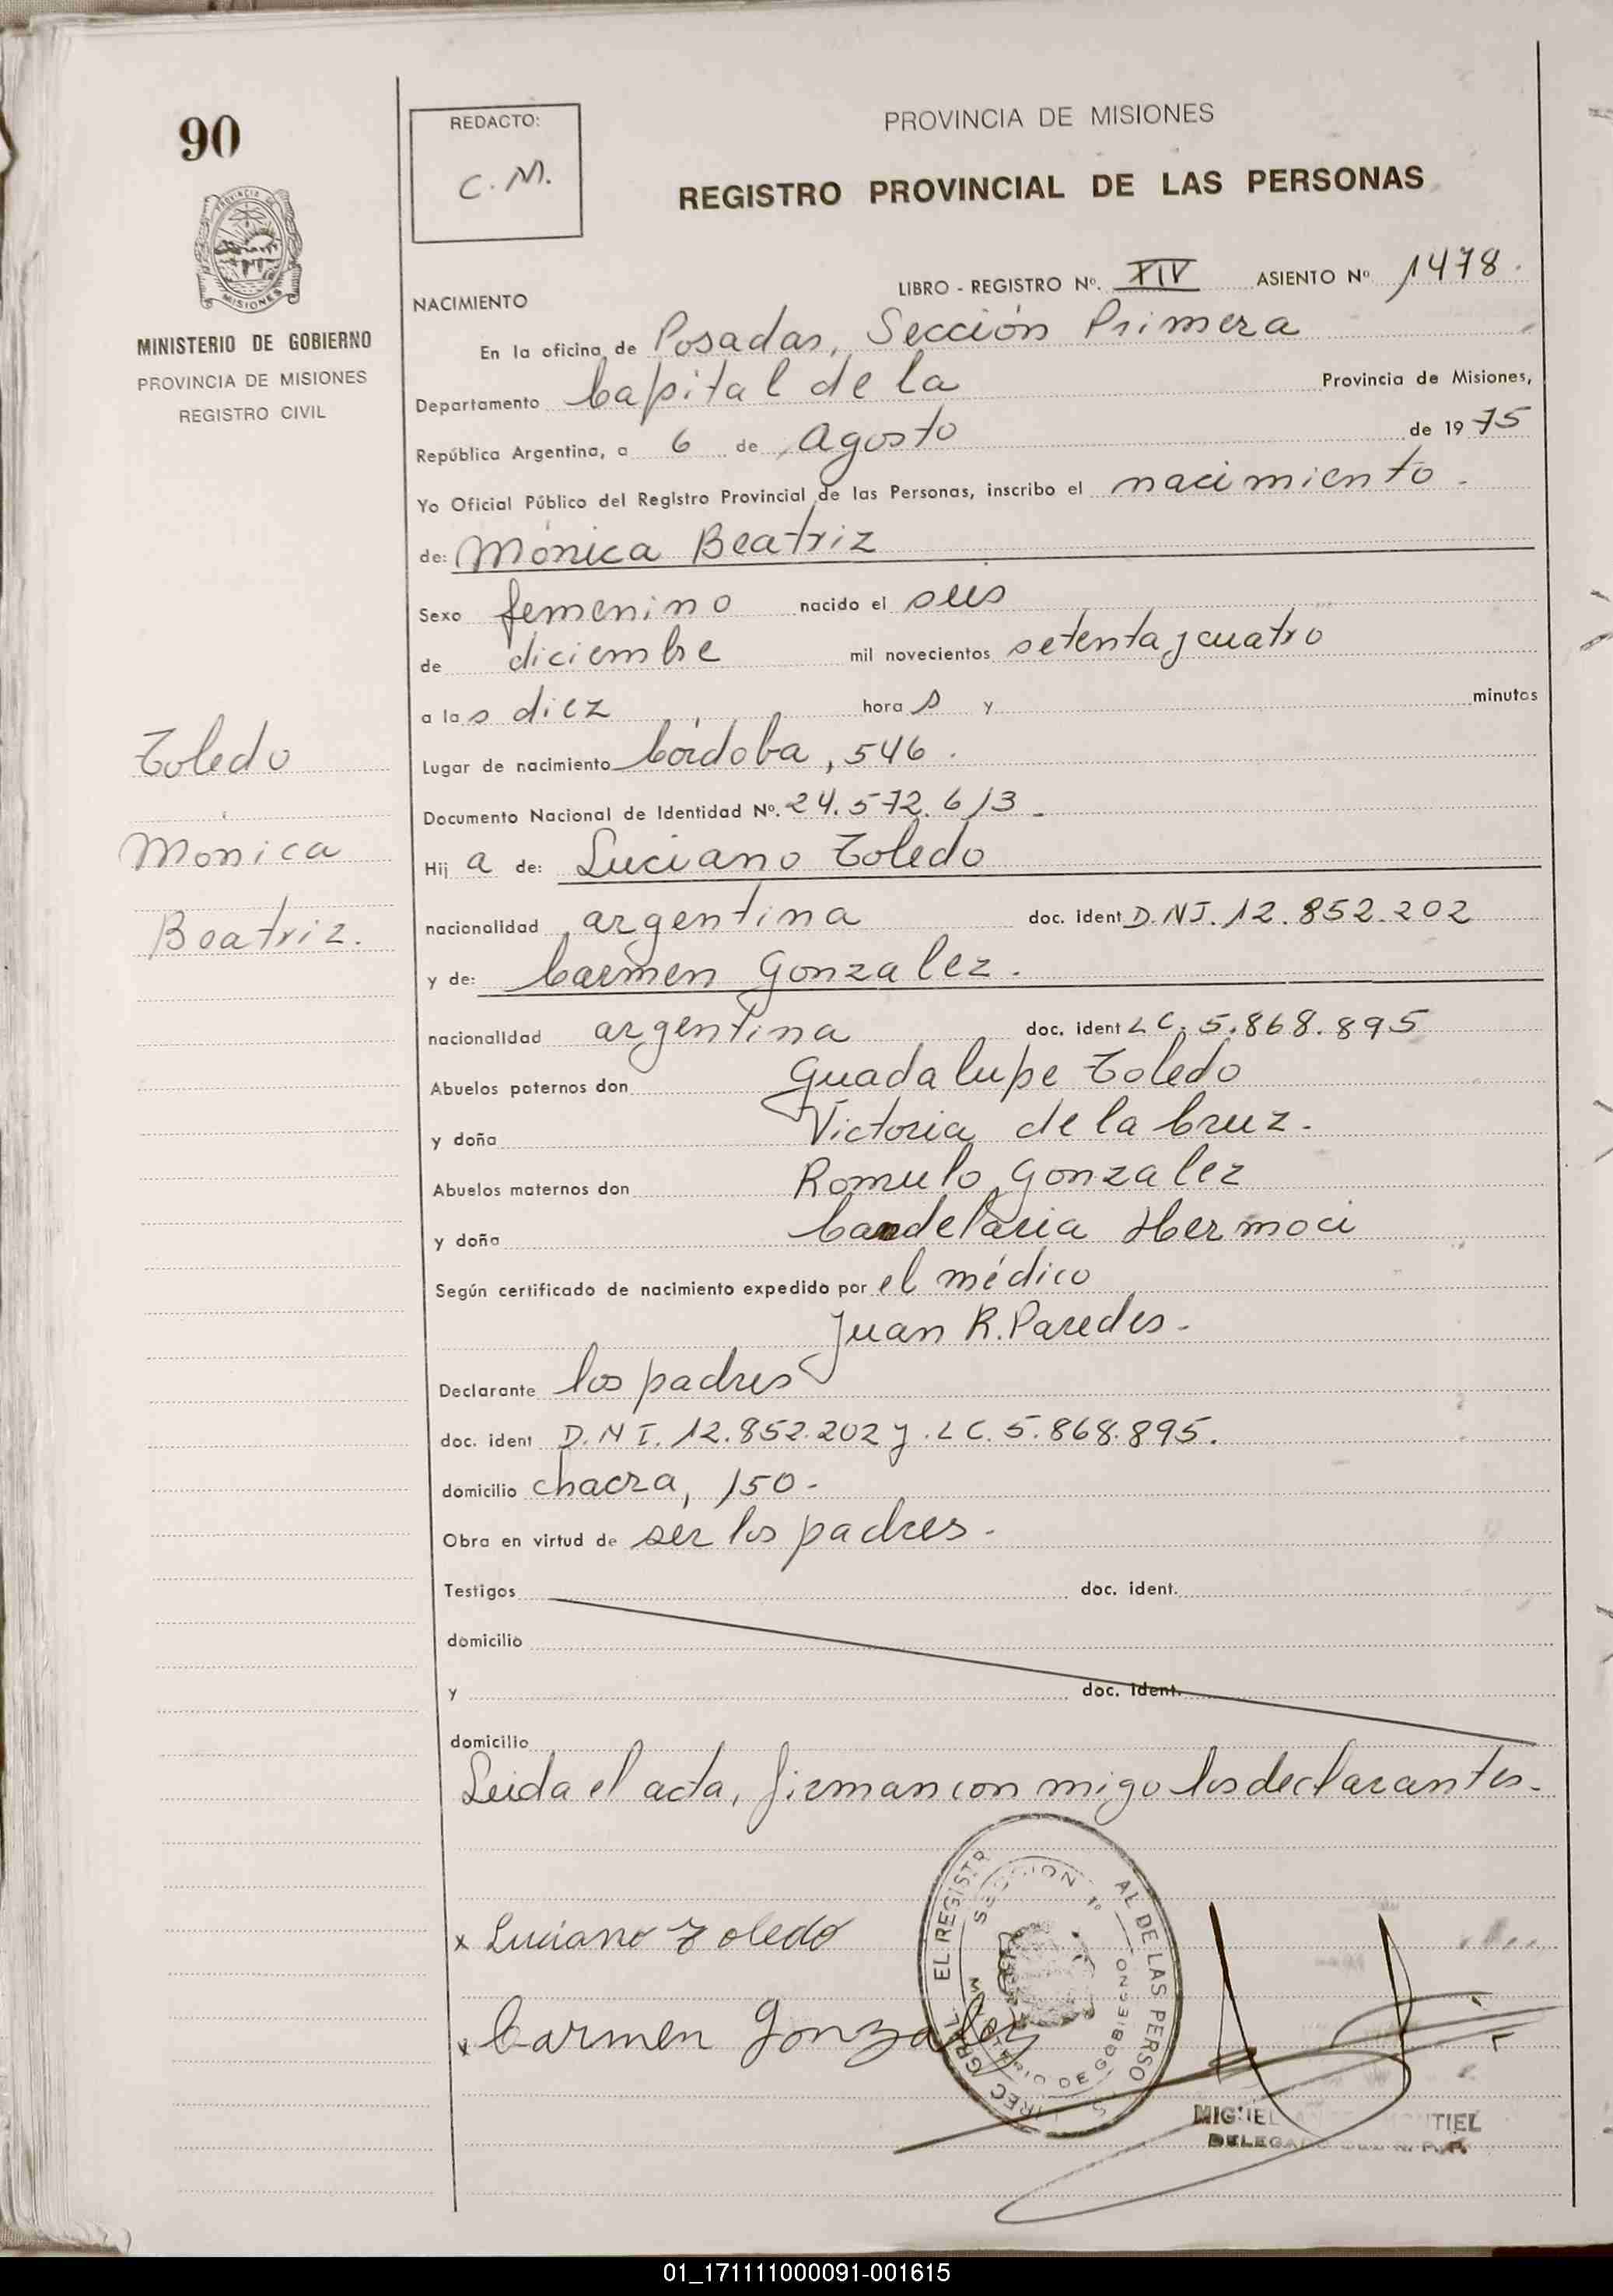 90
PROVINCIA DE
MISIONES
MINISTERIO DE GOBIERNO
PROVINCIA DE MISIONES
REGISTRO CIVIL
Toledo
Monica
Beatriz.
REDACTO:
C. M.
PROVINCIA DE MISIONES
REGISTRO PROVINCIAL DE LAS PERSONAS
LIBRO - REGISTRO Nº. XIV ASIENTO Nº 1478.
NACIMIENTO
En la oficina de Posadas, Sección Primera
Departamento Capital de la Provincia de Misiones,
República Argentina, a 6 de Agosto de 1975
Yo Oficial Público del Registro Provincial de las Personas, inscribo el nacimiento.
de: Mónica Beatriz
Sexo femenino nacido el seis
de diciembre mil novecientos setenta y cuatro
a las diez horas y minutos
Lugar de nacimiento Córdoba, 546.
Documento Nacional de Identidad Nº. 24.572.613-
Hija de: Luciano Toledo
nacionalidad argentina doc. ident D.NI. 12.852.202
y de: Carmen Gonzalez.
nacionalidad argentina doc. ident LC. 5.868.895
Abuelos paternos don Guadalupe Toledo
y doña Victoria de la Cruz.
Abuelos maternos don Romulo Gonzalez
y doña Candelaria Hermoci
Según certificado de nacimiento expedido por el médico
Juan R. Paredes-
Declarante los padres
doc. ident D.NI. 12.852.202 y LC. 5.868.895.
domicilio chacra, 150-
Obra en virtud de ser los padres-
Testigos doc. ident.
domicilio
y doc. ident.
domicilio
Leida el acta, firman con migo los declarantes-
x Luciano Toledo
x Carmen Gonzalez
SECCION 1º
DE GOBIERNO
MIGUEL
01_171111000091-001615